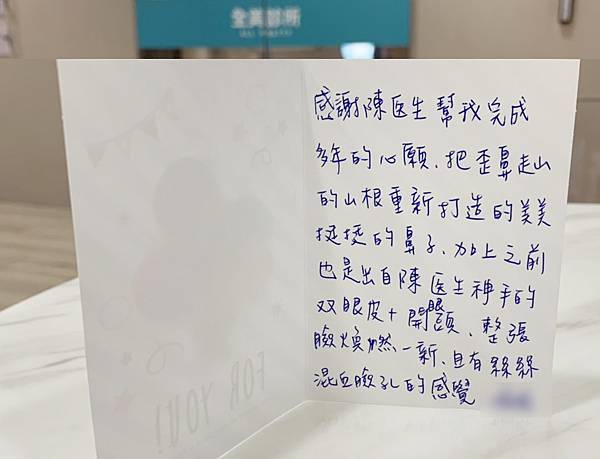 全美診所
感謝陳医生幫我完成
多年的心願、把歪鼻走山
的山根重新打造的美美
挺挺的鼻子、加上之前
也是出自陳医生神手的
双眼皮+開眼頭、整張
臉煥燃一新、且有絲絲
混血臉孔的感覺
FOR YOU!